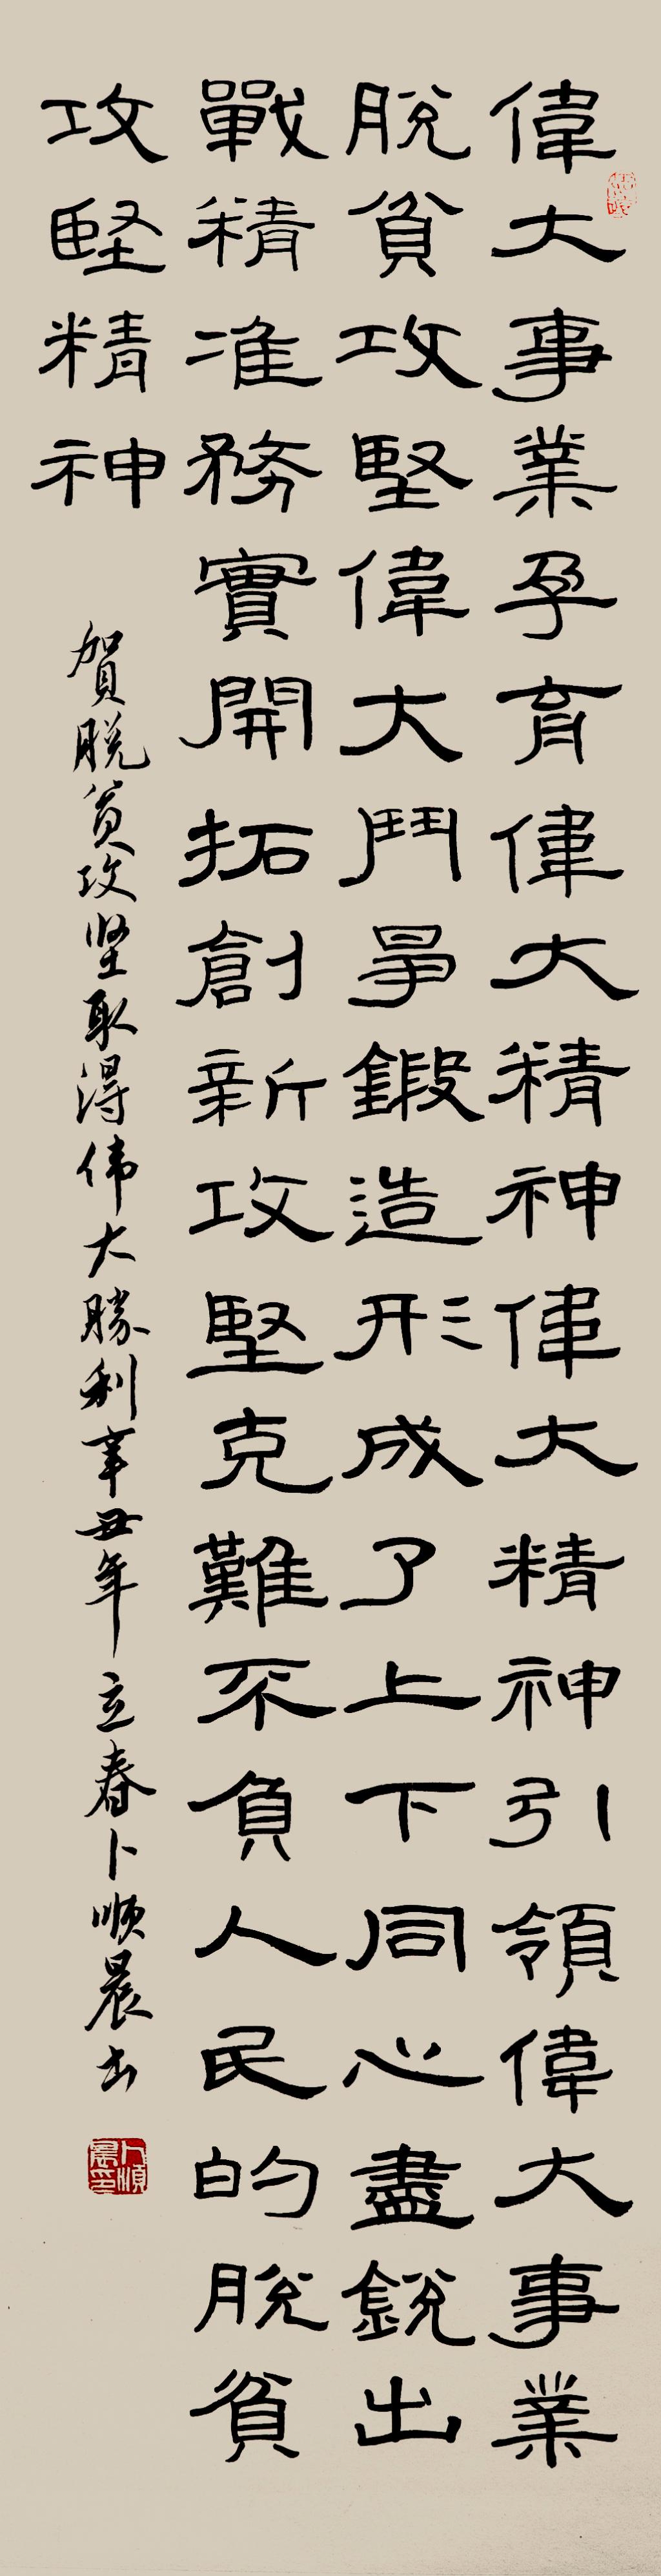 偉大事業孕育偉大精神偉大精神引領偉大事業
脫貧攻堅偉大鬥爭鍛造形成了上下同心盡銳出
戰精准務實開拓創新攻堅克難不負人民的脫貧
攻堅精神
賀脱貧攻坚取得伟大勝利辛丑年立春卜順晨书
卜順晨印